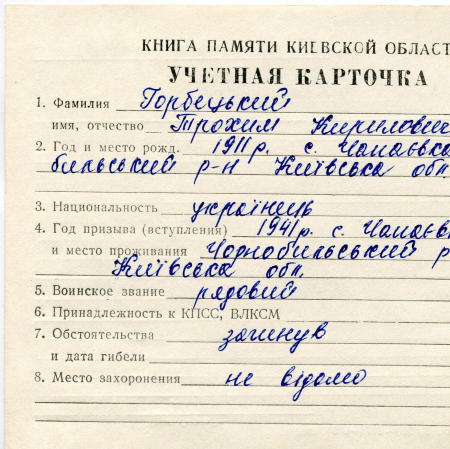 КНИГА ПАМЯТИ КИЕВСКОЙ ОБЛАСТ
УЧЕТНАЯ КАРТОЧКА
1. Фамилия Горбецький
имя, отчество Трохим Кирилович
2. Год и место рожд. 1911 р. с. Чапаєвка
бильський р-н Київська обл.
3. Национальность українець
4. Год призыва (вступления) 1941 р. с. Чапаєв
и место проживания Чорнобильський р
Київська обл.
5. Воинское звание рядовий
6. Принадлежность к КПСС, ВЛКСМ
7. Обстоятельства загинув
и дата гибели
8. Место захоронения не відомо